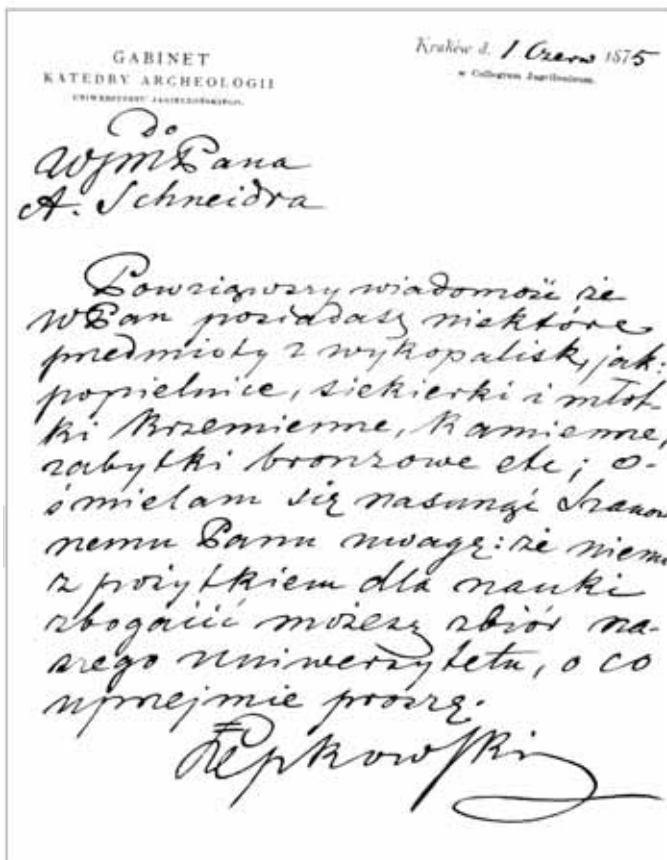 GABINET
KATEDRY ARCHEOLOGII
UNIWERSYTETU JAGIELLOŃSKIEGO.
Kraków d. 1 Czerw 1875
w Collegium Jagiellonicum.
do
WJM Pana
A. Schneidra
Powziąwszy wiadomość że
WPan posiadasz niektóre
przedmioty z wykopalisk, jak:
popielnice, siekierki i młot-
ki krzemienne, kamienne,
zabytki bronzowe etc; o-
śmielam się nasunąć Szanow
nemu Panu uwagę: że niemi
z pożytkiem dla nauki
zbogacić możesz zbiór na-
szego Uniwersytetu, o co
uprzejmie proszę.
Łepkowski